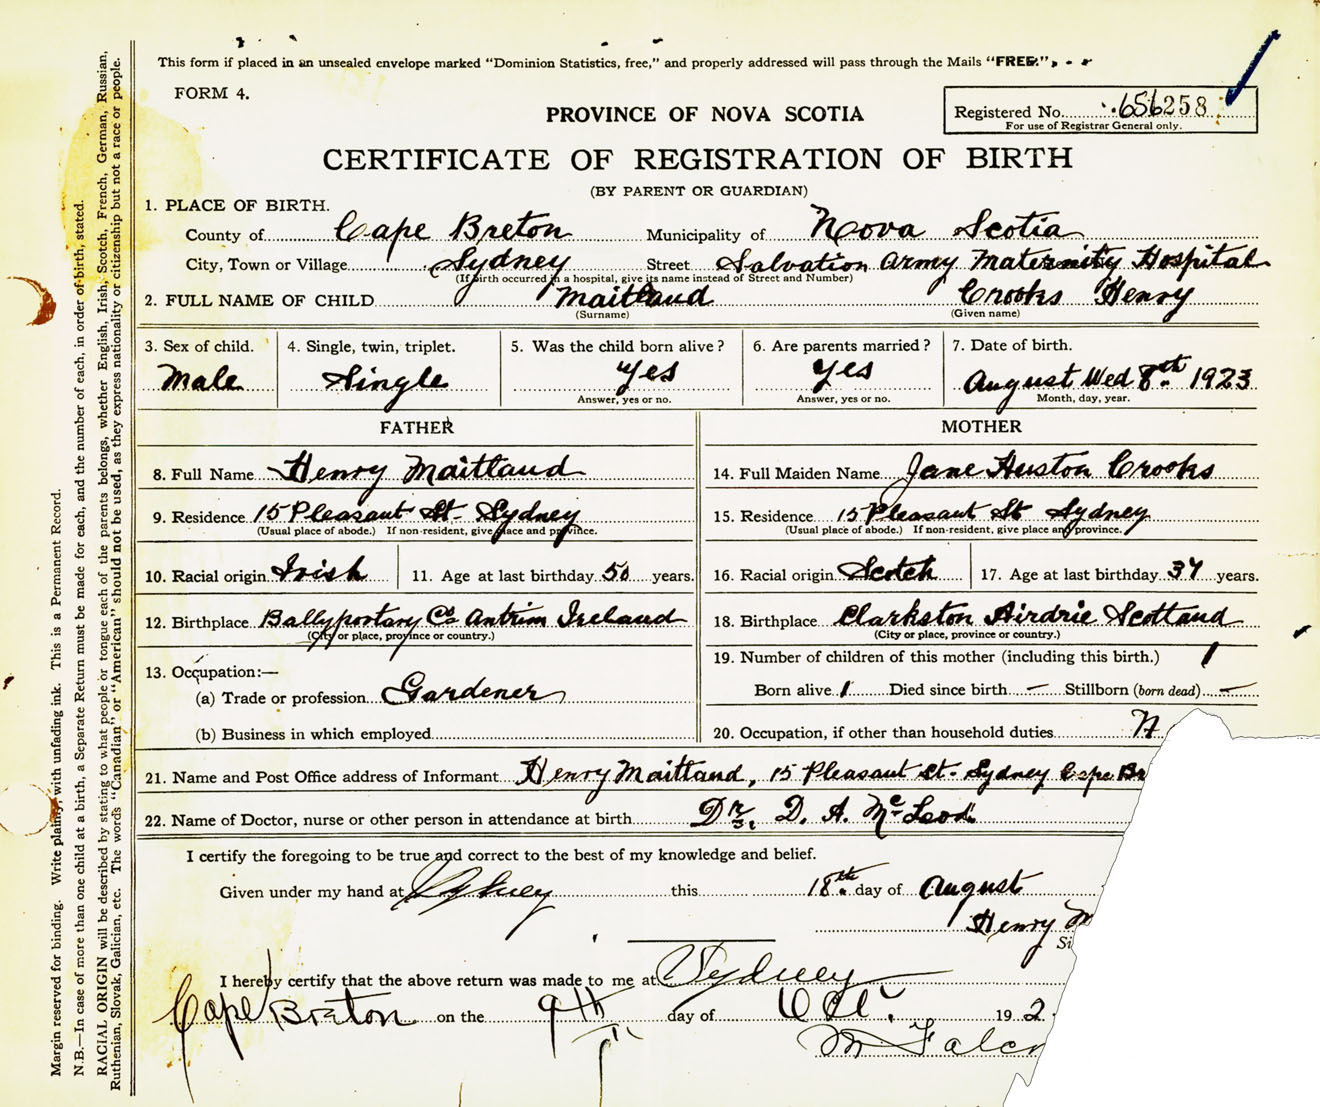 This form if placed in an unsealed envelope marked "Dominion Statistics, free," and properly addressed will pass through the Mails "FREE."
FORM 4.
PROVINCE OF NOVA SCOTIA
Registered No. 656258
For use of Registrar General only.
CERTIFICATE OF REGISTRATION OF BIRTH
(BY PARENT OR GUARDIAN)
1. PLACE OF BIRTH.
County of Cape Breton Municipality of Nova Scotia
City, Town or Village Sydney Street Salvation Army Maternity Hospital
(If birth occurred in a hospital, give its name instead of Street and Number)
2. FULL NAME OF CHILD Maitland Crooks Henry
(Surname) (Given name)
3. Sex of child. 4. Single, twin, triplet. 5. Was the child born alive? 6. Are parents married? 7. Date of birth.
Male Single Yes Yes August Wed 8th 1923
Answer, yes or no. Answer, yes or no. Month, day, year.
FATHER
8. Full Name Henry Maitland
9. Residence 15 Pleasant St. Sydney
(Usual place of abode.) If non-resident, give place and province.
10. Racial origin Irish 11. Age at last birthday 50 years.
12. Birthplace Ballyportary Co Antrim Ireland
(City or place, province or country.)
13. Occupation:—
(a) Trade or profession Gardener
(b) Business in which employed
MOTHER
14. Full Maiden Name Jane Huston Crooks
15. Residence 15 Pleasant St Sydney
(Usual place of abode.) If non-resident, give place and province.
16. Racial origin Scotch 17. Age at last birthday 37 years.
18. Birthplace Clarkston Airdrie Scotland
(City or place, province or country.)
19. Number of children of this mother (including this birth.) 1
Born alive 1 Died since birth — Stillborn (born dead) —
20. Occupation, if other than household duties
21. Name and Post Office address of Informant Henry Maitland, 15 Pleasant St. Sydney Cape Br
22. Name of Doctor, nurse or other person in attendance at birth Dr. D. A. McLeod
I certify the foregoing to be true and correct to the best of my knowledge and belief.
Given under my hand at Sydney this 18th day of August
Henry M
Si
I hereby certify that the above return was made to me at Sydney
Cape Breton on the 9th day of Oct. 192
Margin reserved for binding. Write plainly, with unfading ink. This is a Permanent Record.
N.B.—In case of more than one child at a birth, a Separate Return must be made for each, and the number of each, in order of birth, stated.
RACIAL ORIGIN will be described by stating to what people or tongue each of the parents belongs, whether English, Irish, Scotch, French, German, Russian,
Ruthenian, Slovak, Galician, etc. The words "Canadian" or "American" should not be used, as they express nationality or citizenship but not a race or people.